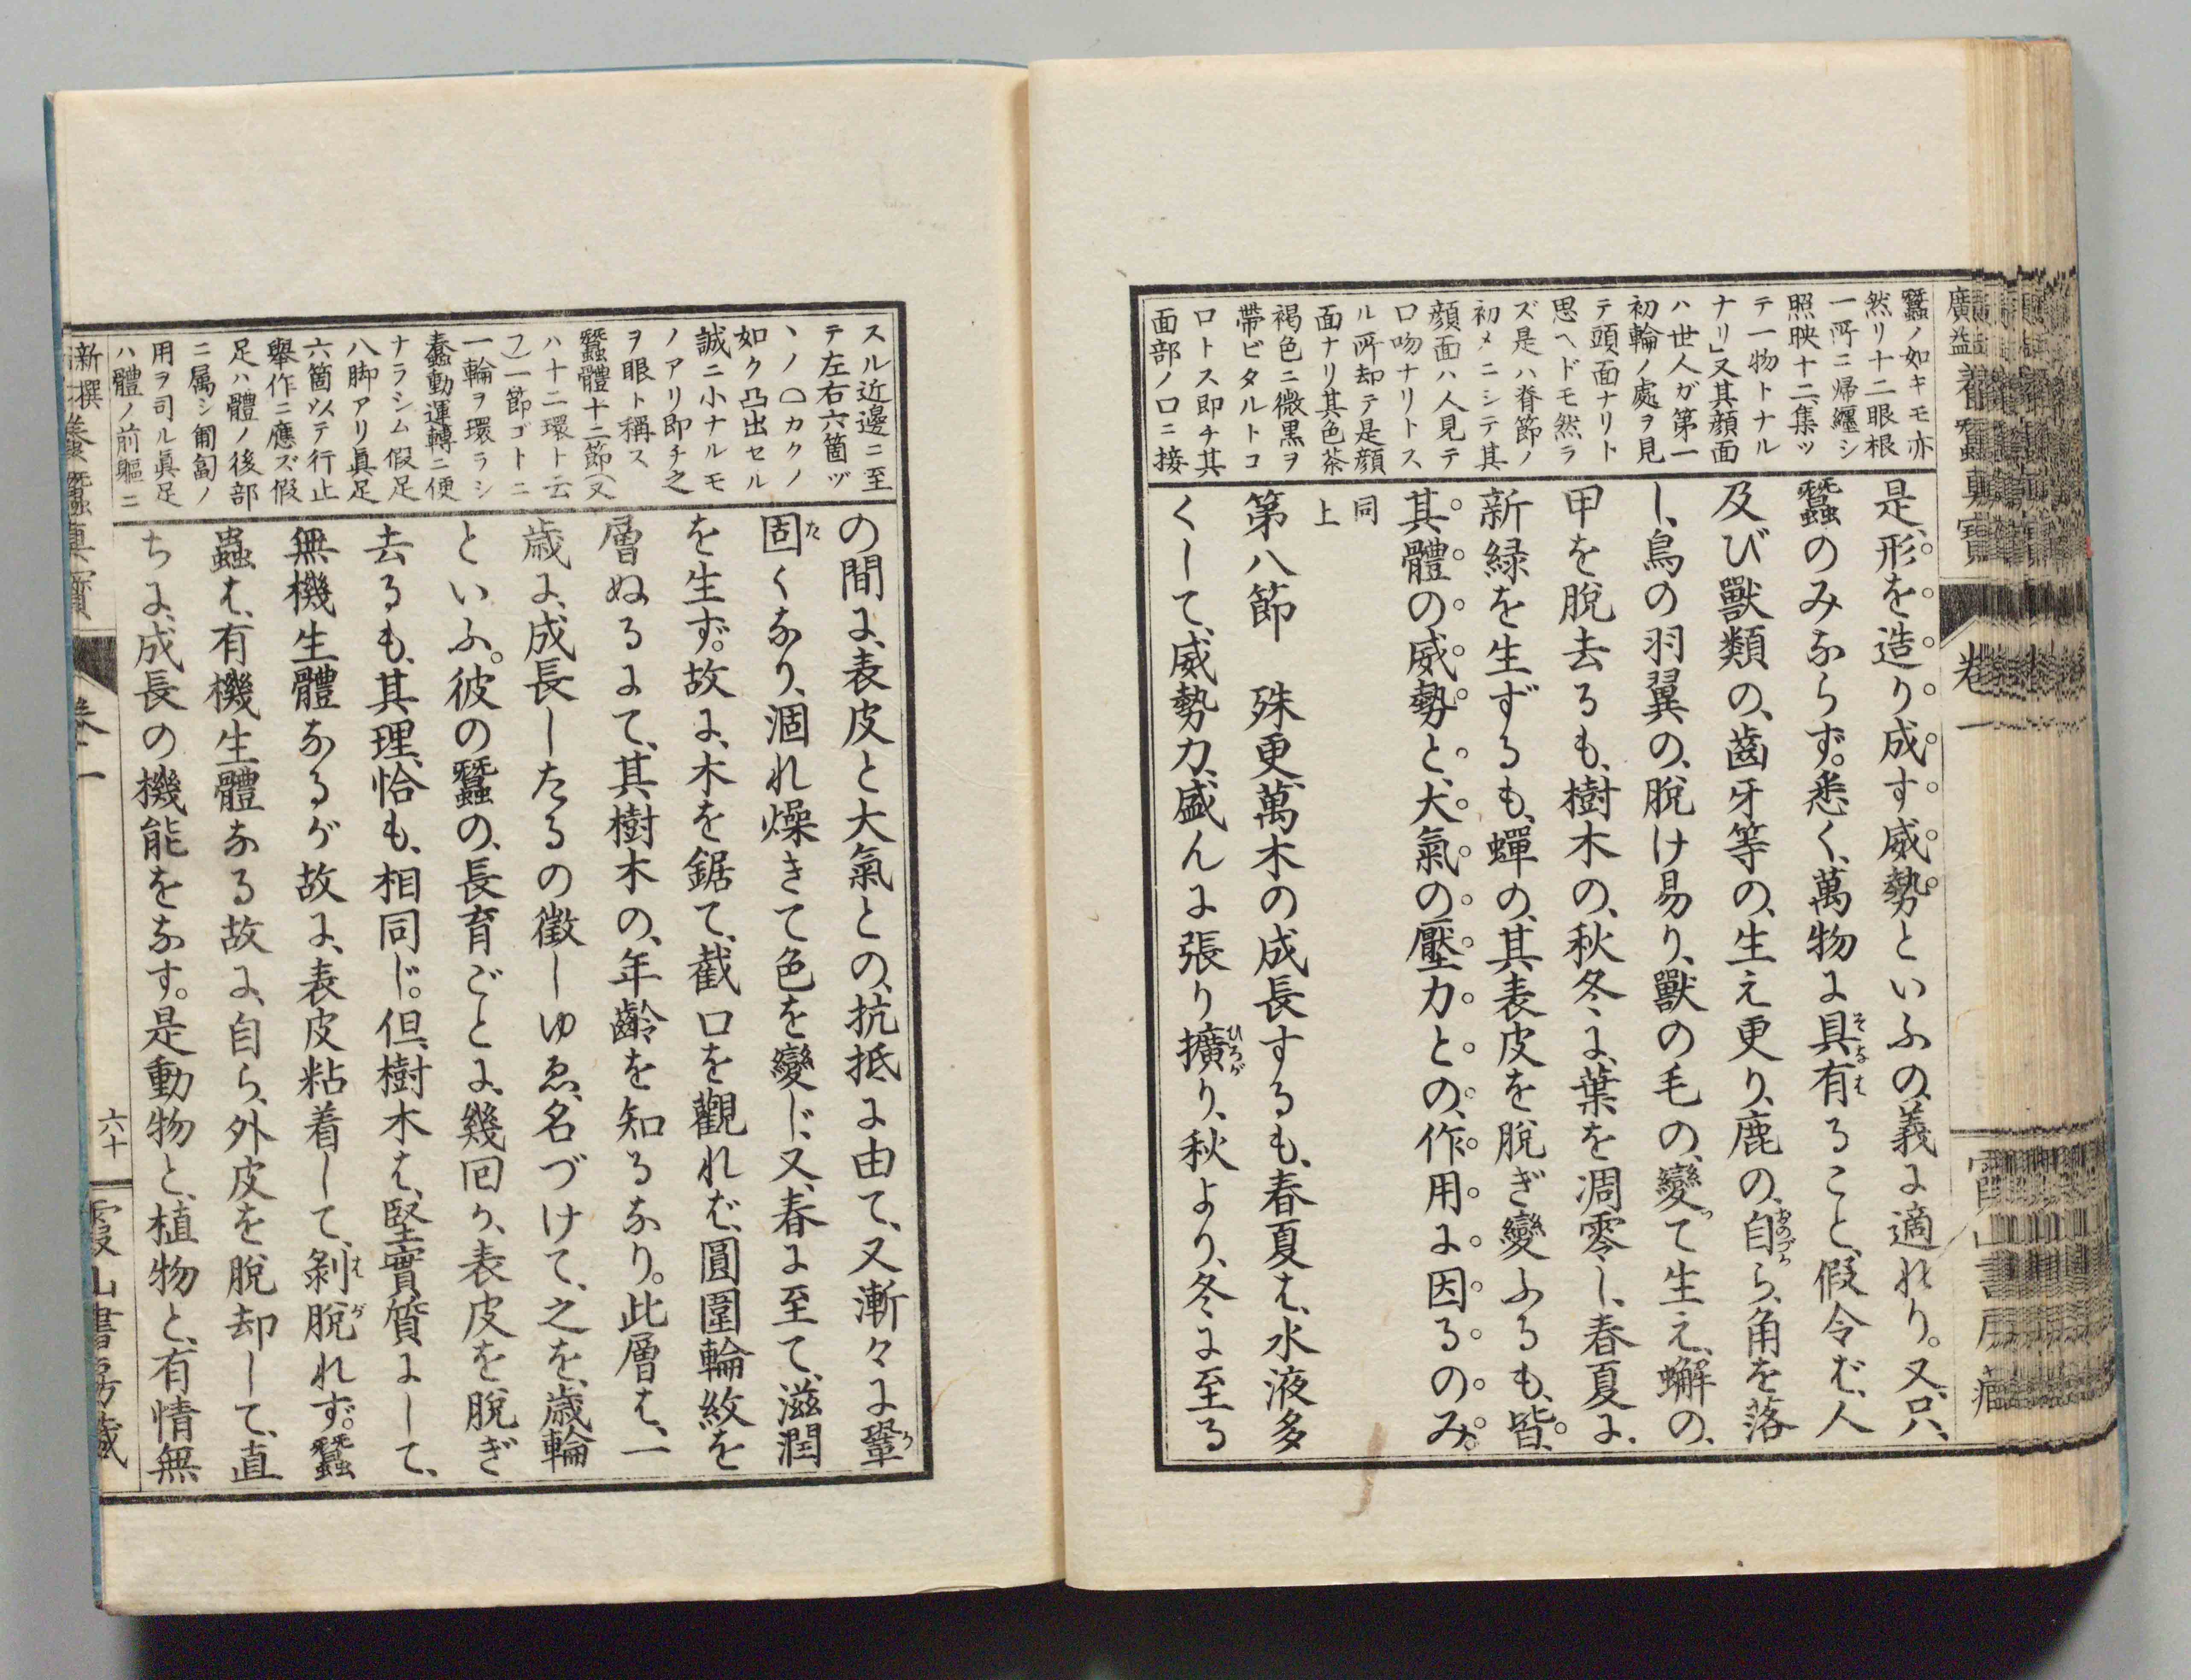 蠶ノ如キモ亦
然リ十二眼根
一所ニ帰纏シ
照映十二集ッ
テ一物トナル
ナリ」又其顔面
ハ世人ガ第一
初輪ノ處ヲ見
テ頭面ナリト
思ヘドモ然ラ
ズ是ハ脊節ノ
初メニシテ其
顔面ハ人見テ
口吻ナリトス
ル所却テ是顔
面ナリ其色茶
褐色ニ微黒ヲ
帶ビタルトコ
ロトス即チ其
面部ノ口ニ接
是、形を造り成す威勢といふの、義に適れり。又、只、
蠶のみならず。悉く、萬物に具有ること、假令ば、人
及び獸類の、齒牙等の、生え更り、鹿の、自ら、角を落
し、鳥の羽翼の、脱け易り、獸の毛の、變て生え、蠏の、
甲を脱去るも、樹木の、秋冬に、葉を凋零し、春夏に、
新緑を生ずるも、蟬の、其表皮を脱ぎ變ふるも、皆、
其體の威勢と、大氣の壓力との、作用に因るのみ。
同上
第八節 殊更、萬木の成長するも、春夏は、水液多
くして、威勢力、盛んに張り擴り、秋より、冬に至る
廣益養蠶真寶 卷一
スル近邊ニ至
テ左右六箇ヅ
ヽノ⌒カクノ
如ク凸出セル
誠ニ小ナルモ
ノアリ即チ之
ヲ眼ト稱ス
蠶體十二節(又
ハ十二環ト云
フ)一節ゴトニ
一輪ヲ環ラシ
蠢動運轉ニ便
ナラシム假足
八脚アリ眞足
六箇以テ行止
舉作ニ應ズ假
足ハ體ノ後部
ニ属シ匍匐ノ
用ヲ司ル眞足
ハ體ノ前軀ニ
の間に、表皮と大氣との、抗抵に由て、又漸々に鞏
固くなり、涸れ燥きて色を變じ、又、春に至て、滋潤
を生ず。故に、木を鋸て、截口を觀れば、圓圍輪紋を
層ぬるにて、其樹木の、年齡を知るなり。此層は、一
歳に、成長したるの徴しゆゑ、名づけて、之を、歳輪
といふ。彼の蠶の、長育ごとに、幾回か、表皮を脱ぎ
去るも、其理、恰も、相同じ。但、樹木は、堅實質にして、
無機生體なるが故に、表皮粘着して、剝脱れず。蠶
蟲は、有機生體なる故に、自ら、外皮を脱却して、直
ちに、成長の機能をなす。是動物と、植物と、有情無
卷一 六十 霞山書房藏